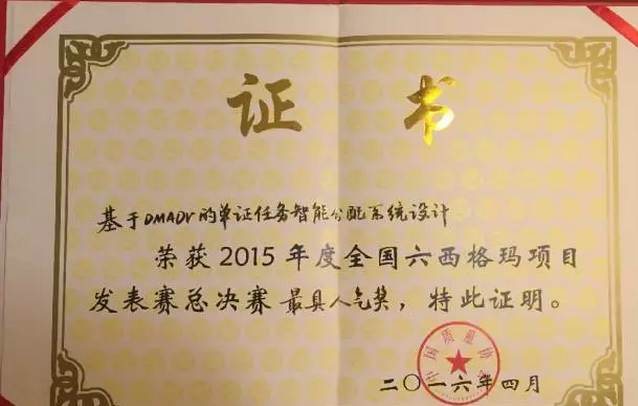 证 书
基于DMADV的单证任务智能分配系统设计
荣获2015年度全国六西格玛项目
发表赛总决赛 最具人气奖,特此证明。
中国质量协会
二〇一六年四月